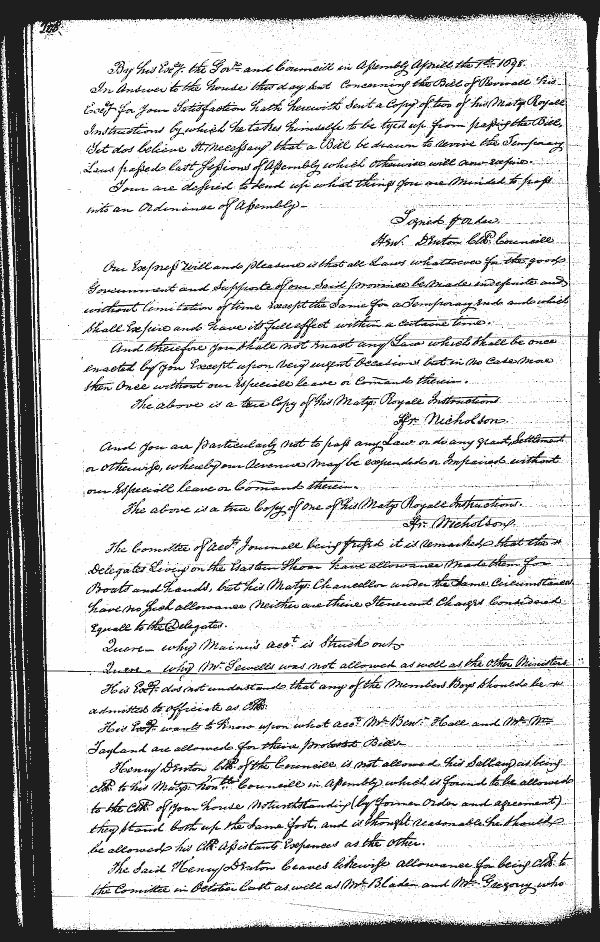 By his Excy. the Govr. and Councill in Assembly Aprill the 1th 1698.
In Answer to the house this day sent Concerning the Bill of Revivall his
Excy for your Satisfaction hath herewith Sent a Copy of two of his Matys Royall
Instructions by which he takes himselfe to be tyed up from passing the Bill,
Yet dos believe it necessary that a Bill be drawn to revive the Temporary
Laws passed last Sessions of Assembly which otherwise will now expire.
Your are desired to Send up what things you are Minded to pass
into an Ordinance of Assembly.
Signed p order
Hen. Denton Clk. Councill
Our Express will and pleasure is that all Laws whatsoever for the good
Government and Supporte of our Said province be made indefinite and
without limitation of time Except the Same for a Temporary End and which
Shall Expire and have its full effect within a certaine time.
And therefore you Shall not Enact any Law which shall be once
enacted by you Except upon very urgent Occasions but in no Case More
then Once without our Especiall leave or Comand therein.
The above is a true Copy of his Matys Royall Instructions
ffr. Nicholson
And You are particularly not to pass any Law or do any grant, Settlement
or otherwise, whereby our Revenue may be expended or Impaired without
our Especiall leave or Comand therein.
The above is a true Copy of one of his Matys Royall Instructions.
ffr. Nicholson
The Comittee of Acct. Journall being perused it is remarked that the
Delegates Living on the Eastern Shoar have allowance made them for
Boats and hands, but his Matys Chancellor under the Same Circumstances
have no Such allowance Neither are theire Itenerant Charges Considered
Equall to the Delegates.
Quere why Mainis acct. is Struck out
Quere why Mr. Sewells was not allowed as well as the other Ministers
His Excy. dos not understand that any of the Members Boys Should be
admitted to officiate as Clk.
His Excy. wants to Know upon what acct. Mr. Ben: Hall and Mr. Wm.
Tayland are allowed for their protested Bills
Henry Denton Clk. of the Councill is not allowed his Sallary as being
Clk. to his Matys honble. Councill in Assembly which is found to be allowed
to the Clk. of Your house Notwithstanding (by former Order and agreement)
they Stand both up the Same foot, and is thought reasonable he Should
be allowed his Clk. Assistants Expences as the other.
The Said Henry Denton Craves likewise allowance for being Clk. to
the Comittee in October last as well as Mr. Bladen and Mr. Gregory who